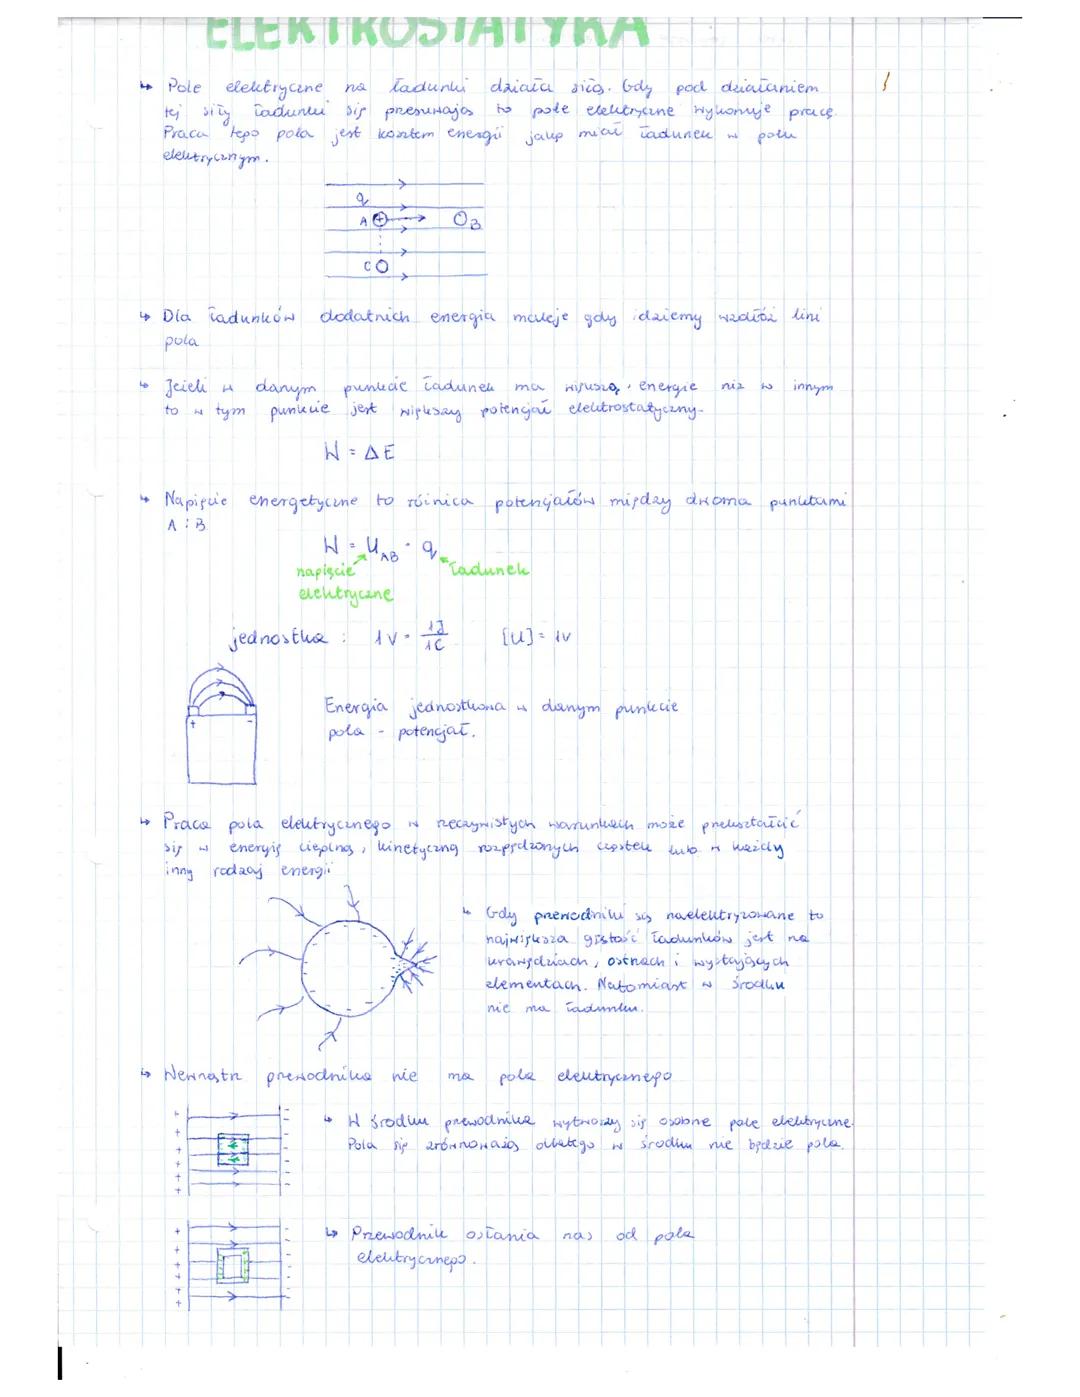 ELEKTROSTATYKA
↳ Pole elektryczne na ładunki działa siłą. Gdy pod działaniem
tej siły ładunki się przesuwają to pole elektryczne wykonuje pracę.
Praca tego pola jest kosztem energii jaką miał ładunek w polu
elektrycznym.
q
A + B
C
↳ Dla ładunków dodatnich energia maleje gdy idziemy wzdłóż lini
pola
↳ Jeżeli w danym punkcie ładunek ma większą energię niż w innym
to w tym punkcie jest większy potencjał elektrostatyczny.
W = ΔE
↳ Napięcie energetyczne to różnica potencjałów między dwoma punktami
A i B
W = U_AB · q
napięcie ładunek
elektryczne
jednostka : 1V = 1J/1C [U] = 1V
+ -
Energia jednostkowa w danym punkcie
pola - potencjał.
↳ Praca pola elektrycznego w rzeczywistych warunkach może przekształcić
się w energię cieplną, kinetyczną rozpędzonych cząstek lub w każdy
inny rodzaj energii
↳ Gdy przewodniki są naelektryzowane to
największa gęstość ładunków jest na
krawędziach, ostrzach i wystających
elementach. Natomiast w środku
nie ma ładunku.
↳ Wewnątrz przewodnika nie ma pola elektrycznego
↳ W środku przewodnika wytworzy się osobne pole elektryczne.
Pola się zrównoważą dlatego w środku nie będzie pola.
↳ Przewodnik osłania nas od pola
elektrycznego.